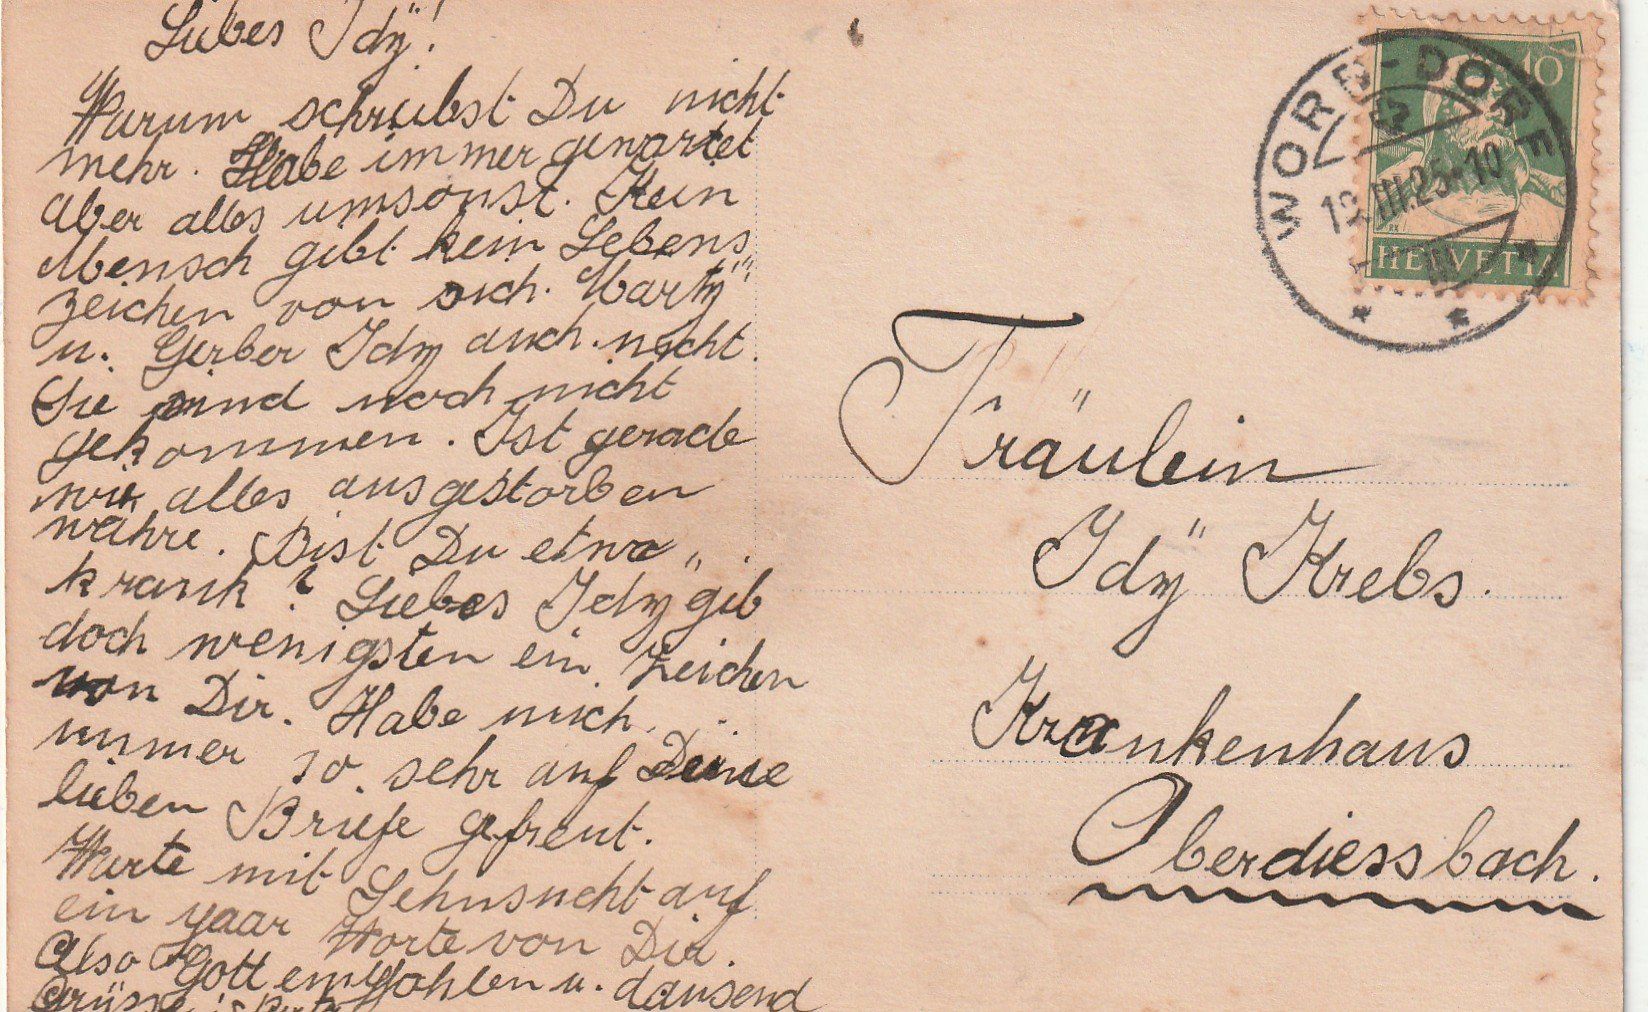 Liebes Idÿ!
Warum schriebst Du nicht
mehr. Habe immer gewartet
aber alles umsonst. Kein
Mensch gibt kein Lebens
zeichen von sich. Martÿ
u. Gerber Idÿ auch nicht.
Sie sind noch nicht
gekommen. Ist gerade
wie alles ausgestorben
währe. Bist Du etwa
krank? Liebes Idÿ gib
doch wenigsten ein Zeichen
von Dir. Habe mich
immer so sehr auf Deine
lieben Briefe gefreut.
Warte mit Sehnsucht auf
ein paar Worte von Dir.
Also Gott empfohlen u. dausend
Grüsse
WORB-DORF
12.III.25-10
10
HELVETIA
Fräulein
Idÿ Krebs.
Krankenhaus
Oberdiessbach.